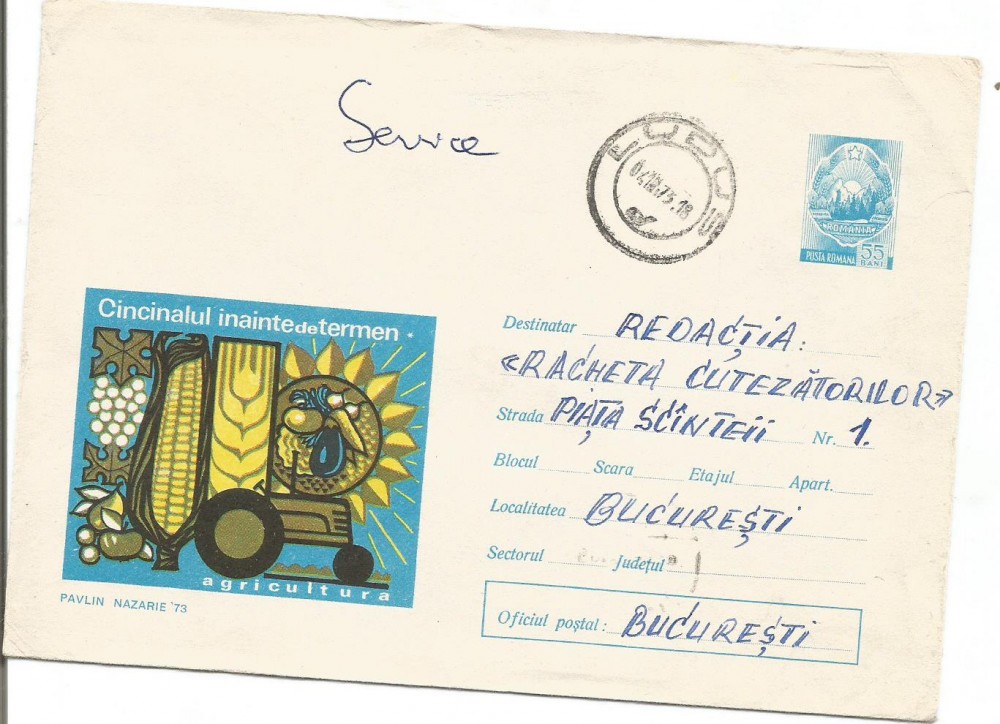 Service
LUDUȘ
POSTA ROMANA
ROMANIA
55
BANI
Cincinalul înainte de termen
agricultura
PAVLIN NAZARIE '73
Destinatar REDACȚIA:
«RACHETA CUTEZĂTORILOR»
Strada PIAȚA SCÎNTEII Nr. 1.
Blocul Scara Etajul Apart.
Localitatea BUCUREȘTI
Sectorul Județul
Oficiul poștal: BUCUREȘTI